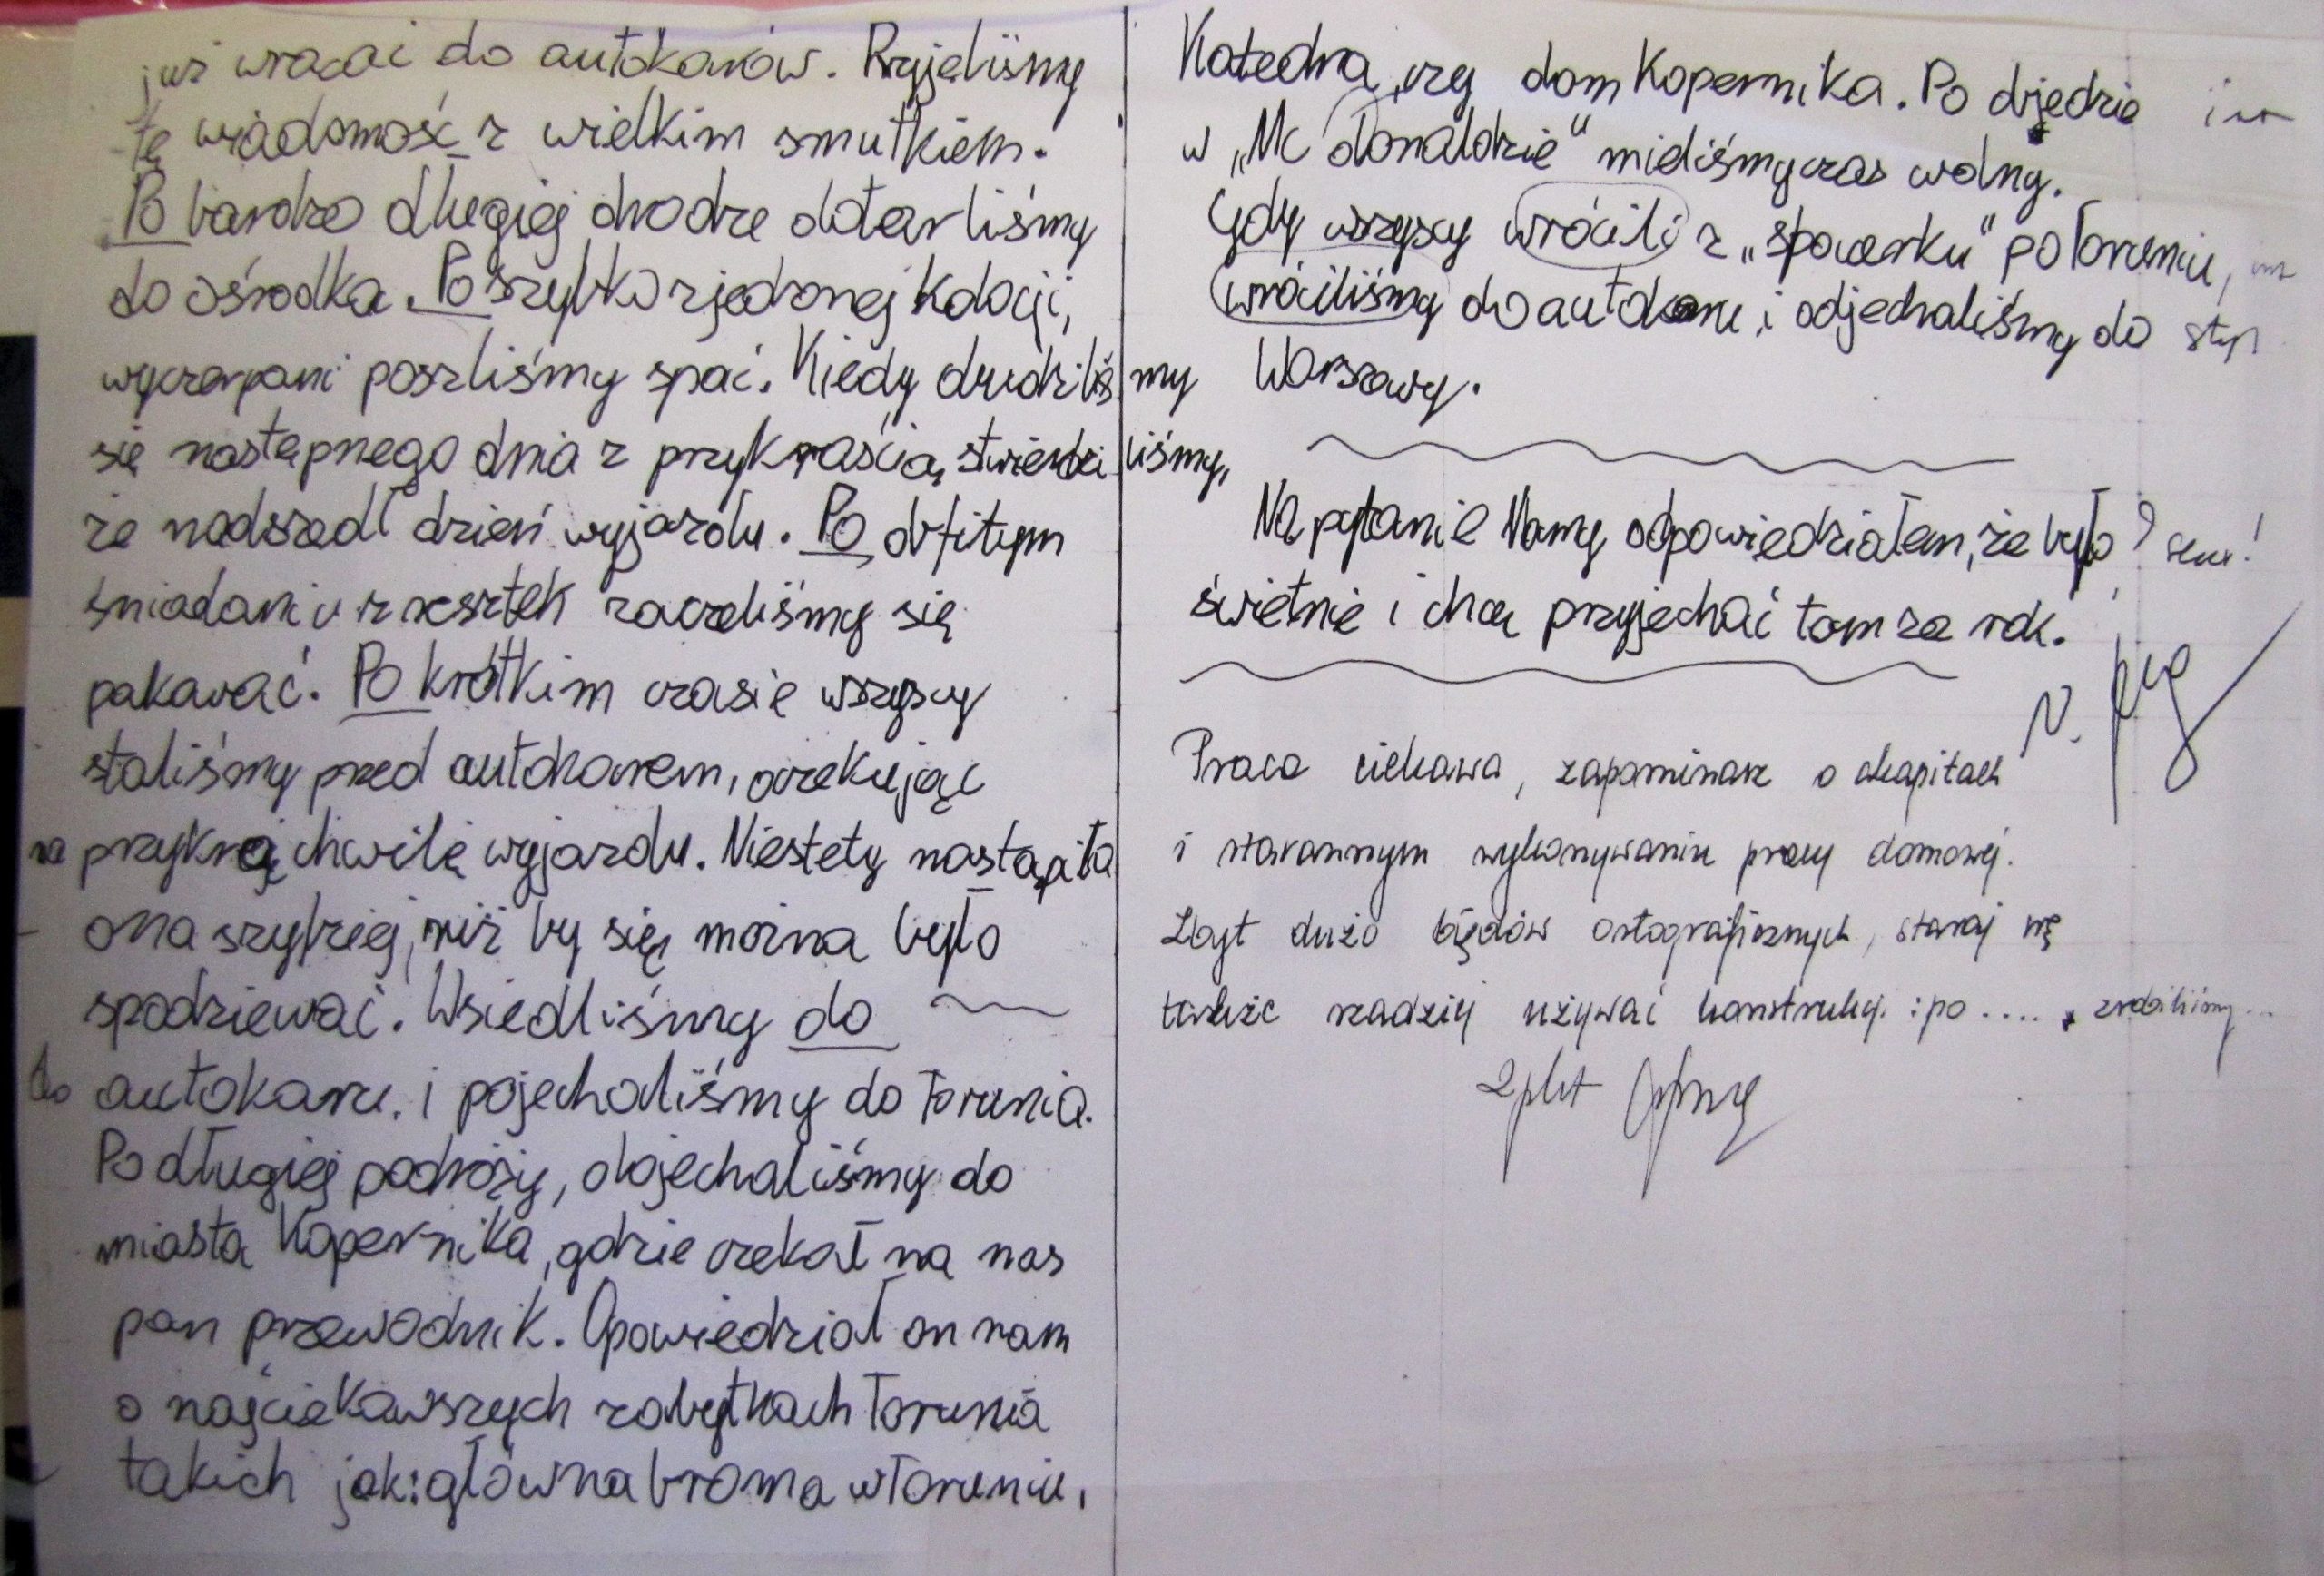 już wracać do autokarów. Przyjeliśmy
tę wiadomość z wielkim smutkiem.
Po bardzo długiej drodze dotarliśmy
do ośrodka. Po szybko zjedzonej kolacji,
wyczerpani poszliśmy spać. Kiedy obudziliśmy
się następnego dnia z przykrością stwierdziliśmy,
że nadszedł dzień wyjazdu. Po obfitym
śniadaniu z resztek zaczeliśmy się
pakować. Po krótkim czasie wszyscy
staliśmy pred autokarem, oczekując
na przykrą chwilę wyjazdu. Niestety nastąpiła
ona szybciej, niż by się można było
spodziewać. Wsiedliśmy do
do autokaru. i pojechaliśmy do Torunia.
Po długiej podróży, dojechaliśmy do
miasta Kopernika, gdzie czekał na nas
pan przewodnik. Opowiedział on nam
o najciekawszych zabytkach Torunia
takich jak: główna brama w Toruniu,
Katedra, czy dom Kopernika. Po objedzie
w „Mc Donaldzie" mieliśmy czas wolny.
Gdy wszyscy wrócili z „spacerku" po Toruniu,
wróciliśmy do autokaru i odjechaliśmy do styl
Warszawy.
Na pytanie Mamy odpowiedziałem, że było ? sens!
świetnie i chcę przyjechać tam za rok.
Praca ciekawa, zapominasz o akapitach
i starannym wykonywaniu pracy domowej.
Zbyt dużo błędów ortograficznych, staraj się
także rzadziej używać konstrukcji: po .... , zrobiliśmy...
2 pkt